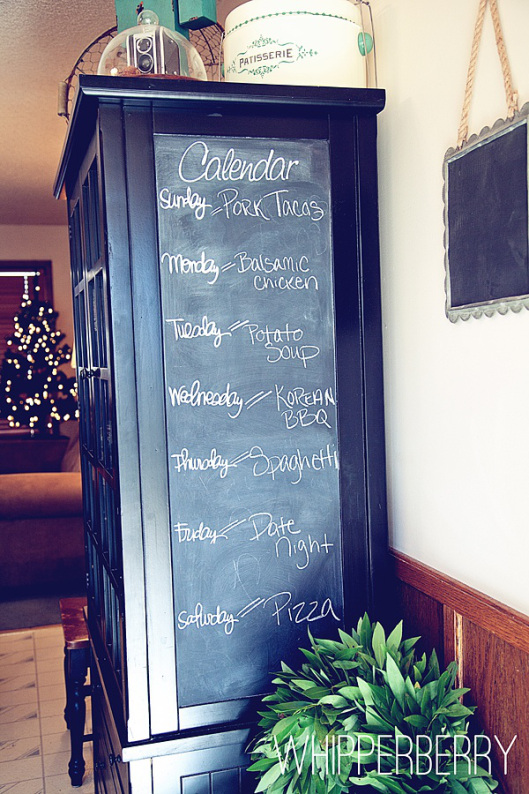 PATISSERIE
Calendar
Sunday = Pork Tacos
Monday = Balsamic
chicken
Tuesday = Potato
Soup
Wednesday = KOREAN
BBQ
Thursday = Spaghetti
Friday = Date
night
Saturday = Pizza
WHIPPERBERRY